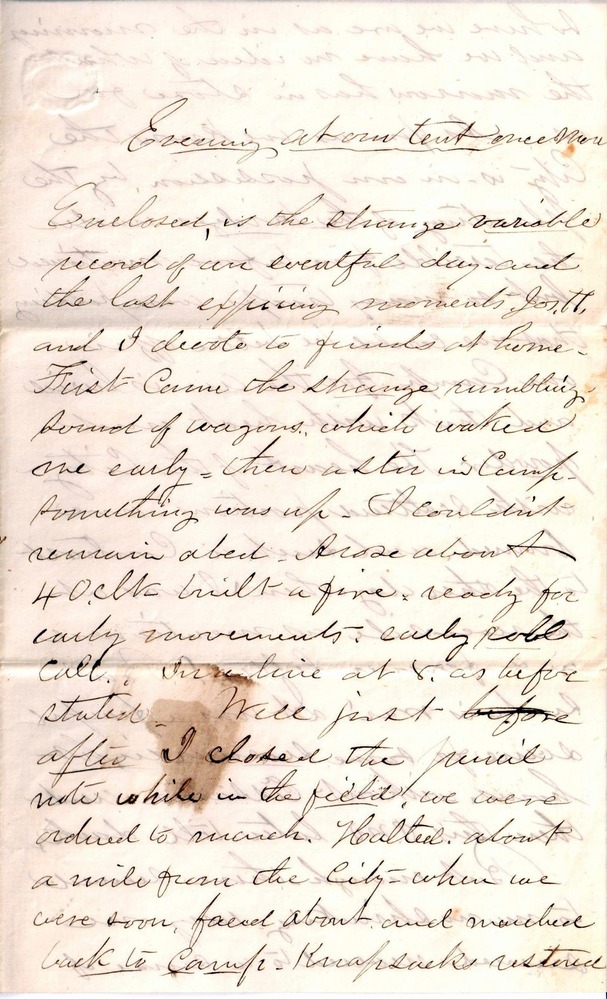 Evening at our tent once More
Enclosed, is the strange variable
record of an eventful day - and
the last expiring moments Jos. H.
and I devote to friends at home -
First Came the strange rumbling
sound of wagons. which waked
me early = then a stir in Camp -
something was up - I couldn't
remain abed - Arose about
4 O.clk built a fire - ready for
early movements. early roll
call. , In line at 8. as before
stated - Well just before
after I closed the pencil
note while in the field, we were
ordered to march. Halted. about
a mile from the City - when we
were soon, faced about. and marched
back to Camp - Knapsacks restored